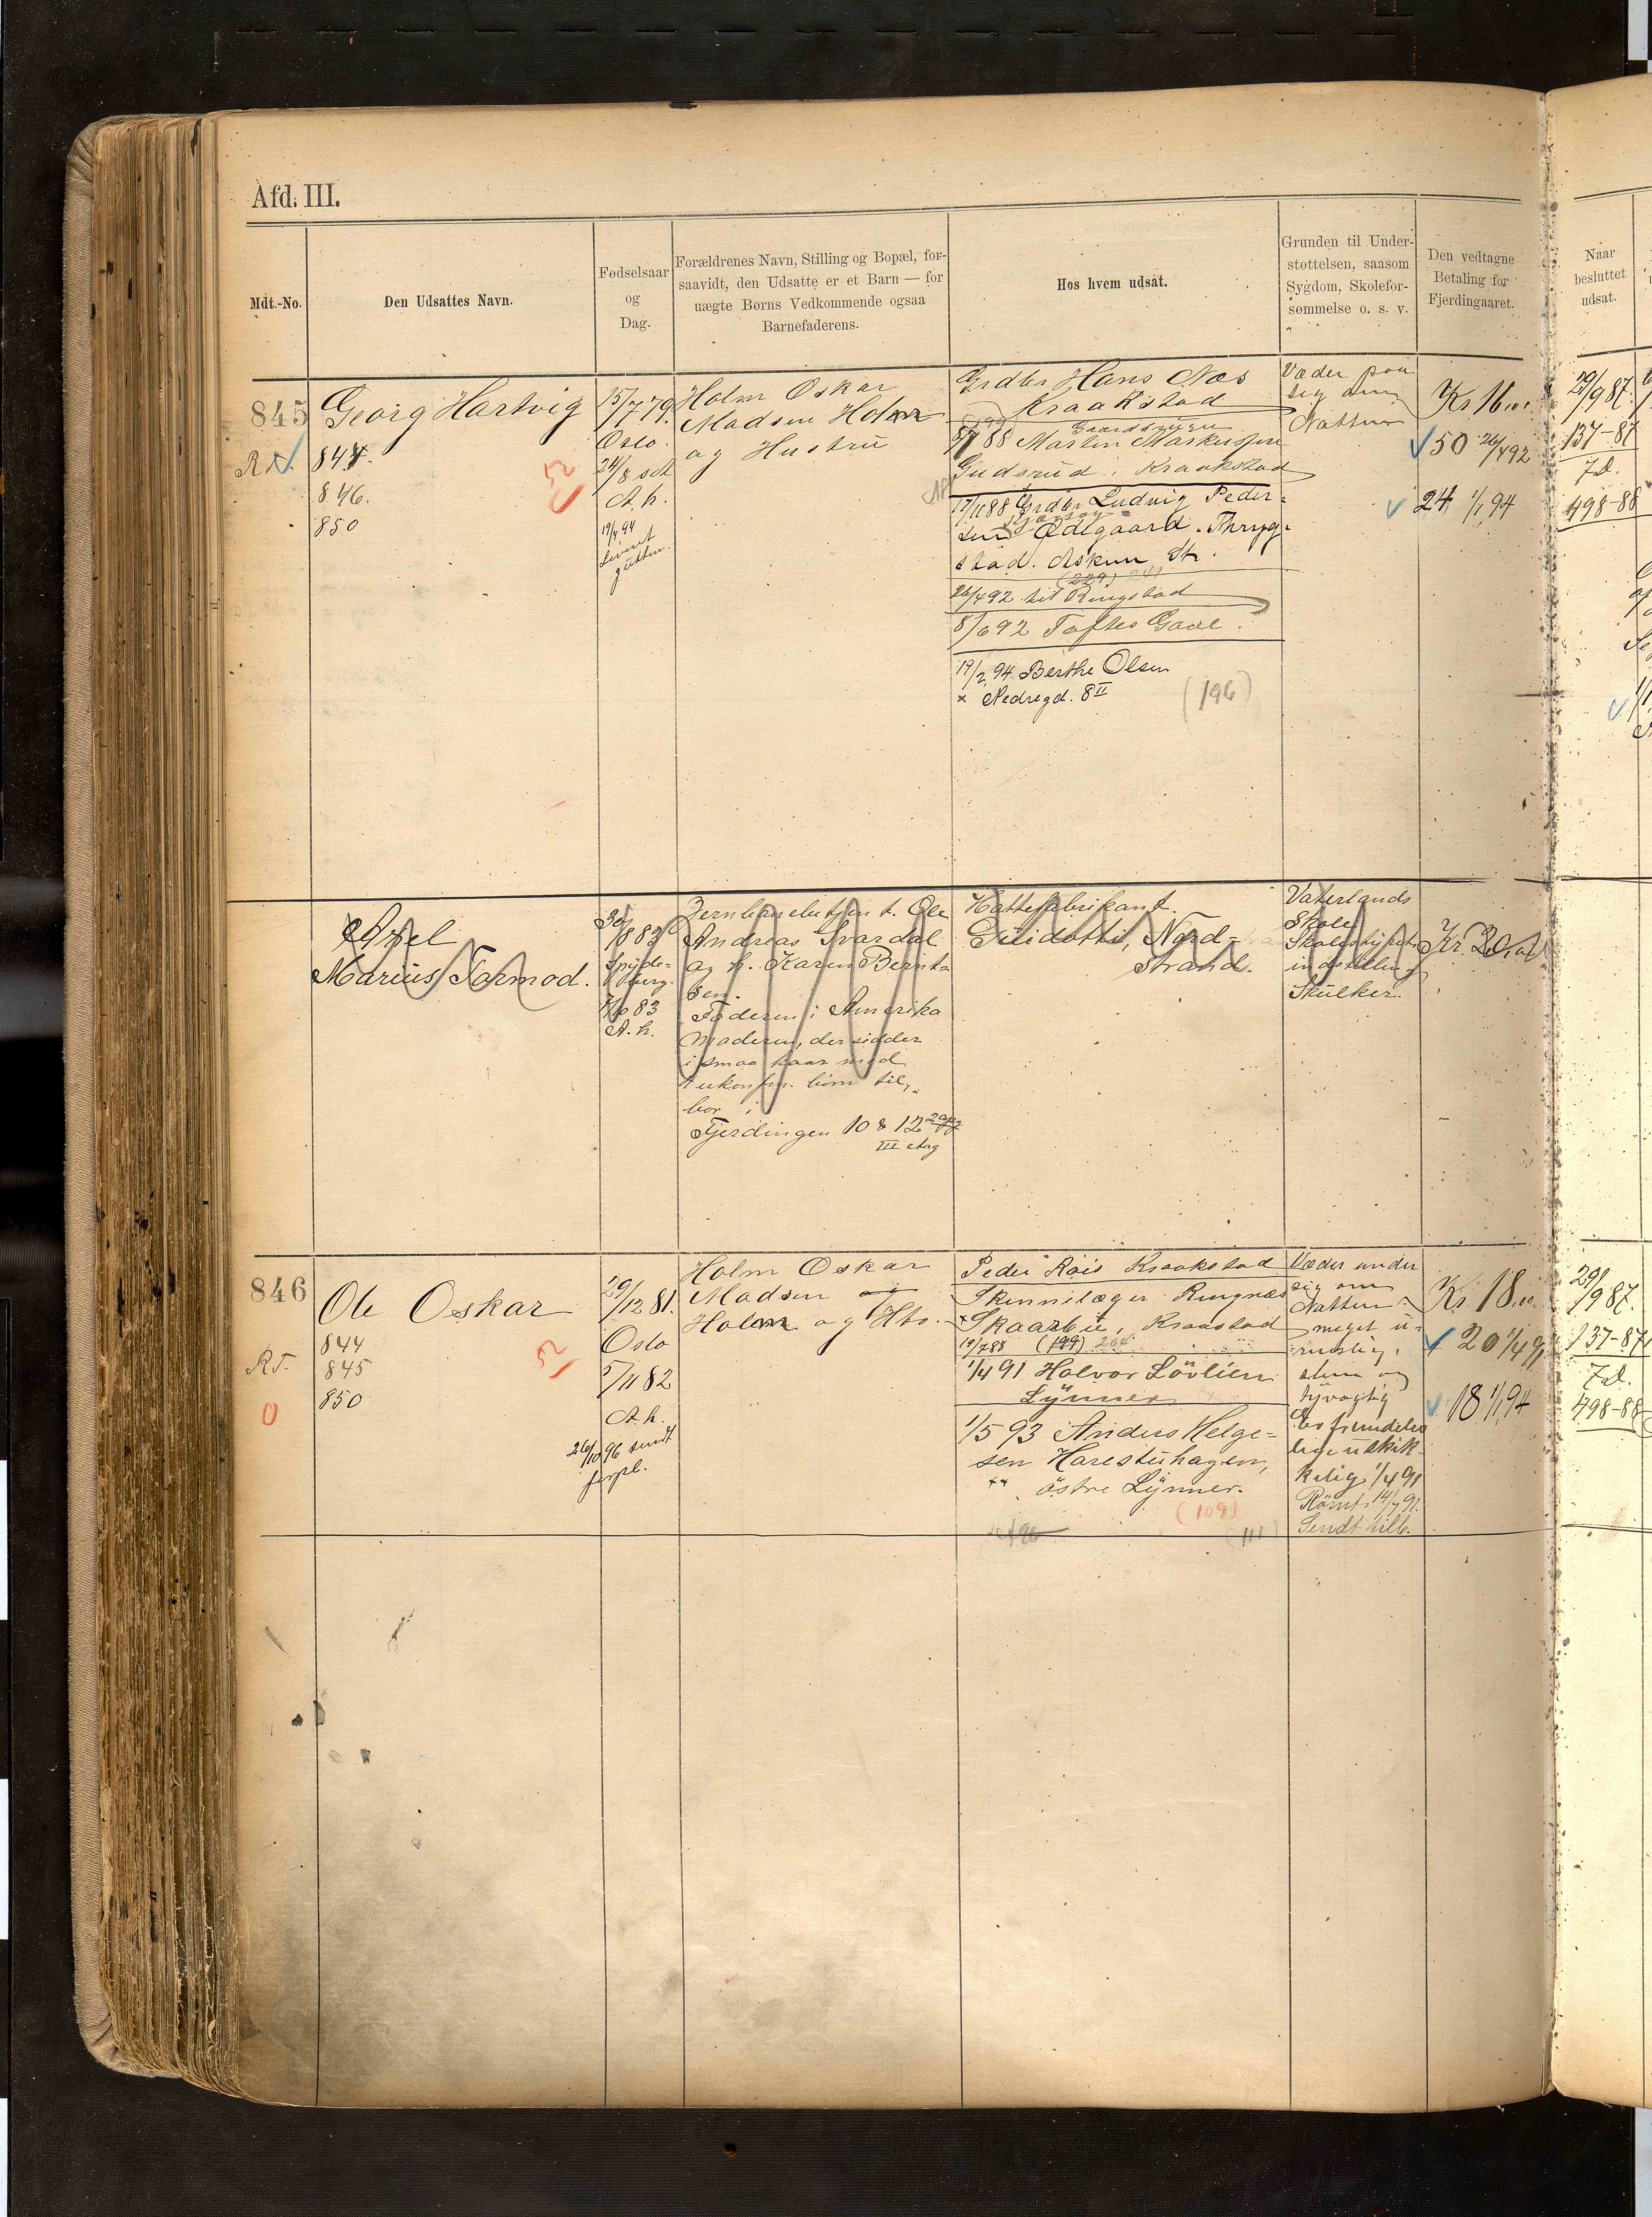 Afd. III.
Mdt.-No.
Den Udsattes Navn.
Fødselsaar
og
Dag.
Forældrenes Navn, Stilling og Bopæl, for-
saavidt, den Udsatte er et Barn — for
uægte Børns Vedkommende ogsaa
Barnefaderens.
Hos hvem udsat.
Grunden til Under-
støttelsen, saasom
Sygdom, Skolefor-
sømmelse o. s. v.
Den vedtagne
Betaling for
Fjerdingaaret.
Naar
besluttet
udsat.
845
Georg Hartvig
844.
846.
850
15/7 79.
Oslo.
24/8 sd
A. h.
19/4 94
gutten.
Holm Oskar
Madsen Holm
og Hustru
Grdbr Hans Næs
Kraakstad
88 Martin Markussen
Gudsrud i Kraakstad
17/11 88 Grdbr Ludvig Peder-
sen Ødegaard. Thryg-
stad. Askim St.
(229)
26/4 92 tit Ringstad
8/6 92 Toftes Gave.
19/2 94 Berthe Olsen
× Nedregd. 8 II
(196)
Væder paa
sig om
Natten
Kr 16.00
50 26/4 92
24 1/1 94
29/9 87.
137-87
7d.
498-88
Axel
Marius Tormod.
30/8 83
Spyde-
berg.
7/10 83
A. h.
Jernbanebetjent. Ole
Andreas Svardal
og h. Karen Bernt-
sen.
Faderen i Amerika
Moderen, der sidder
i smaa kaar med
ukonfm. børn til,
bor i
Fjerdingen 10 & 12 2 opg
III etag
Hattefabrikant.
Gilidotti, Nord-
strand.
Vaterlands
Skole
Skolestyrets
indstilling
Skulker.
Kr. 20.00
846
R.T.
Ole Oskar
844
845
850
29/12 81.
Oslo
5/11 82
A. h.
26/10 96 sendt
forpl.
Holm Oskar
Madsen og
Holm og Htr.
Peder Rois Kraakstad
Skinnilæger Ringnæs
Skaarbu, Kraastad
19/7 88 (199) 204
1/4 91 Halvor Lövlien
Lynner
1/5 93 Anders Helge-
sen Harestuhagen,
×× östre Lynner.
(109)
(111)
Væder under
sig om
Natten.
meget u-
renslig.
slem og
tyvagtig
Er fremdeles
lige uskik-
kelig 1/4 91
Römt 14/7 91.
Sendt tilb.
Kr. 18.00
20 1/4 91
18 1/1 94
29/9 87.
137-87
7d.
498-88